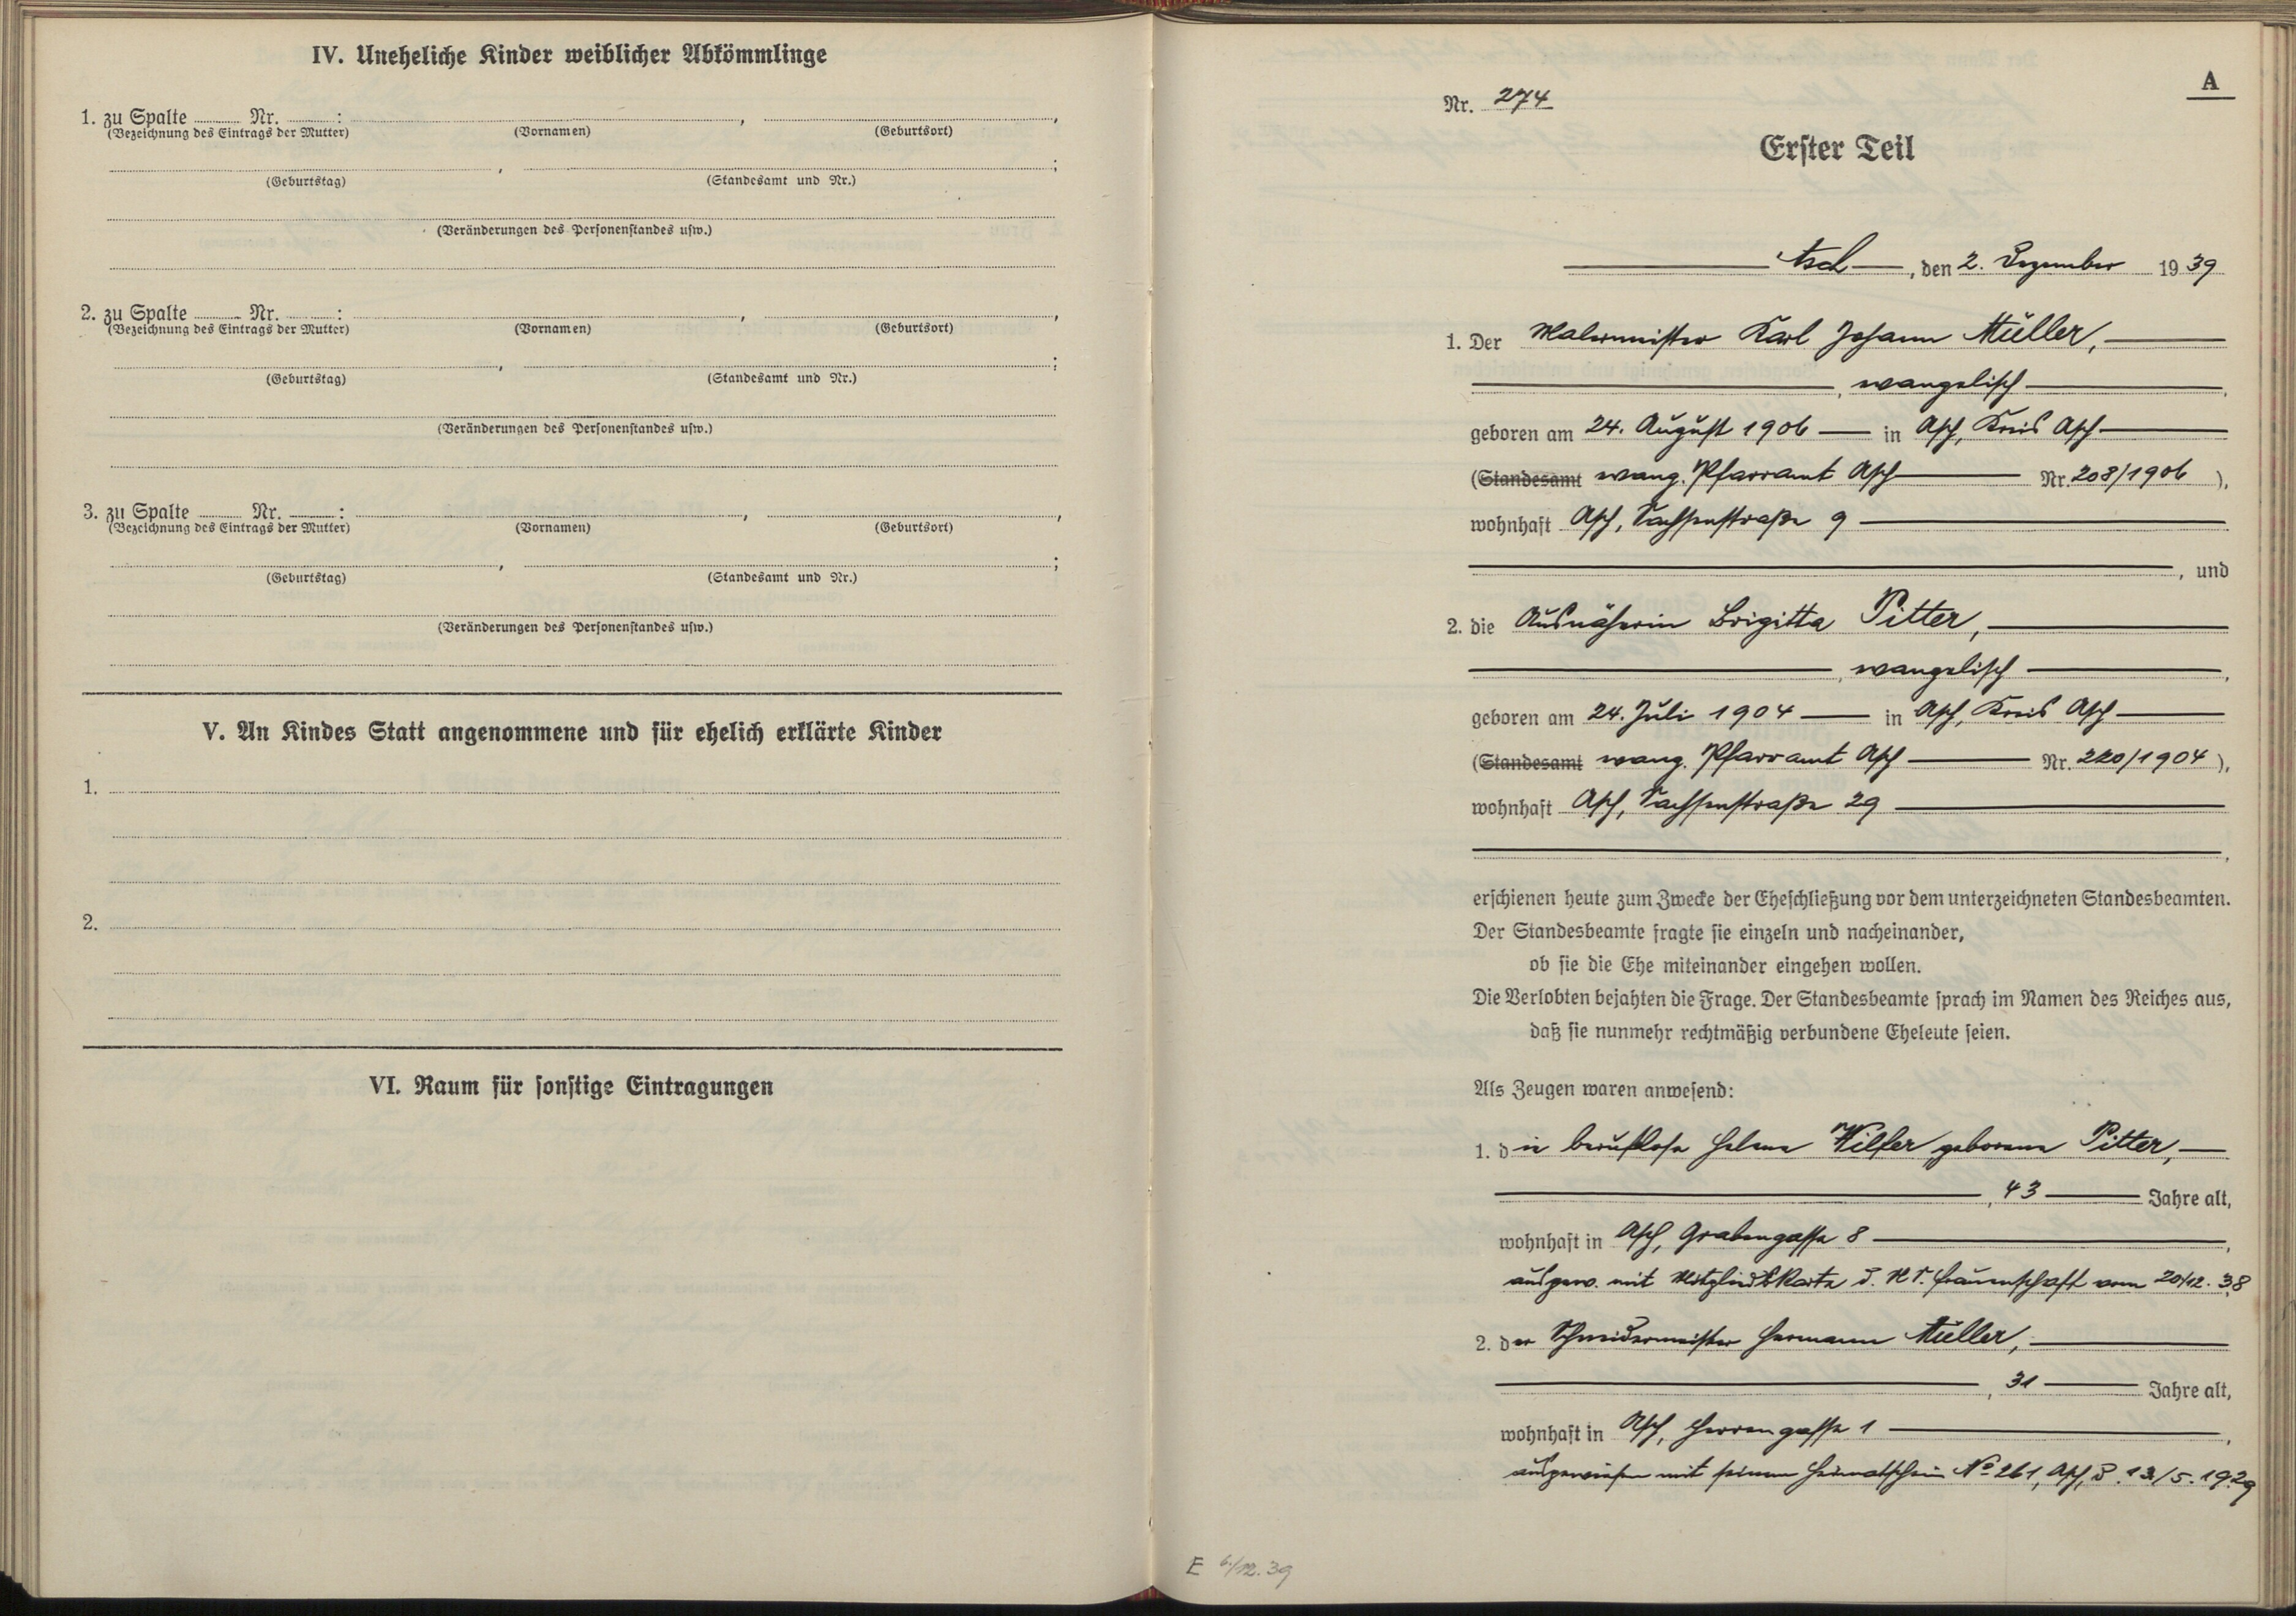 IV. Uneheliche Kinder weiblicher Abkömmlinge
1. zu Spalte ........ Nr. ........ : ........ , ........ ,
(Bezeichnung des Eintrags der Mutter) (Vornamen) (Geburtsort)
........ , ........ ;
(Geburtstag) (Standesamt und Nr.)
(Veränderungen des Personenstandes usw.)
2. zu Spalte ........ Nr. ........ : ........ , ........ ,
(Bezeichnung des Eintrags der Mutter) (Vornamen) (Geburtsort)
........ , ........ ;
(Geburtstag) (Standesamt und Nr.)
(Veränderungen des Personenstandes usw.)
3. zu Spalte ........ Nr. ........ : ........ , ........ ,
(Bezeichnung des Eintrags der Mutter) (Vornamen) (Geburtsort)
........ , ........ ;
(Geburtstag) (Standesamt und Nr.)
(Veränderungen des Personenstandes usw.)
V. An Kindes Statt angenommene und für ehelich erklärte Kinder
1.
2.
VI. Raum für sonstige Eintragungen
A
Nr. 274
Erster Teil
Asch, den 2. Dezember 1939
1. Der Malermeister Karl Johann Müller,
, evangelisch,
geboren am 24. August 1906 in Asch, Kreis Asch
(Standesamt evang. Pfarramt Asch Nr. 208/1906),
wohnhaft Asch, Sachsenstraße 9
, und
2. die Ausnäherin Brigitta Pitter,
, evangelisch,
geboren am 24. Juli 1904 in Asch, Kreis Asch
(Standesamt evang. Pfarramt Asch Nr. 220/1904),
wohnhaft Asch, Sachsenstraße 29
,
erschienen heute zum Zwecke der Eheschließung vor dem unterzeichneten Standesbeamten.
Der Standesbeamte fragte sie einzeln und nacheinander,
ob sie die Ehe miteinander eingehen wollen.
Die Verlobten bejahten die Frage. Der Standesbeamte sprach im Namen des Reiches aus,
daß sie nunmehr rechtmäßig verbundene Eheleute seien.
Als Zeugen waren anwesend:
1. die berufslose Helene Wilfer geborene Pitter,
, 43 Jahre alt,
wohnhaft in Asch, Grabengasse 8,
ausgew. mit Mitgliedskarte d. NS. Frauenschaft vom 20/12. 38
2. der Schneidermeister Hermann Müller,
, 31 Jahre alt,
wohnhaft in Asch, Herrengasse 1,
ausgewiesen mit seinem Heimatschein No 261, Asch, d. 13/5. 1929
E 6/12. 39